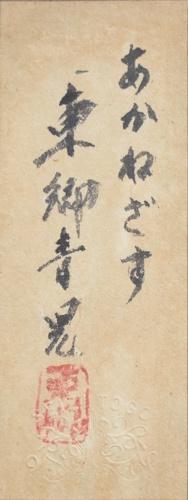 あかねざす
東郷青児